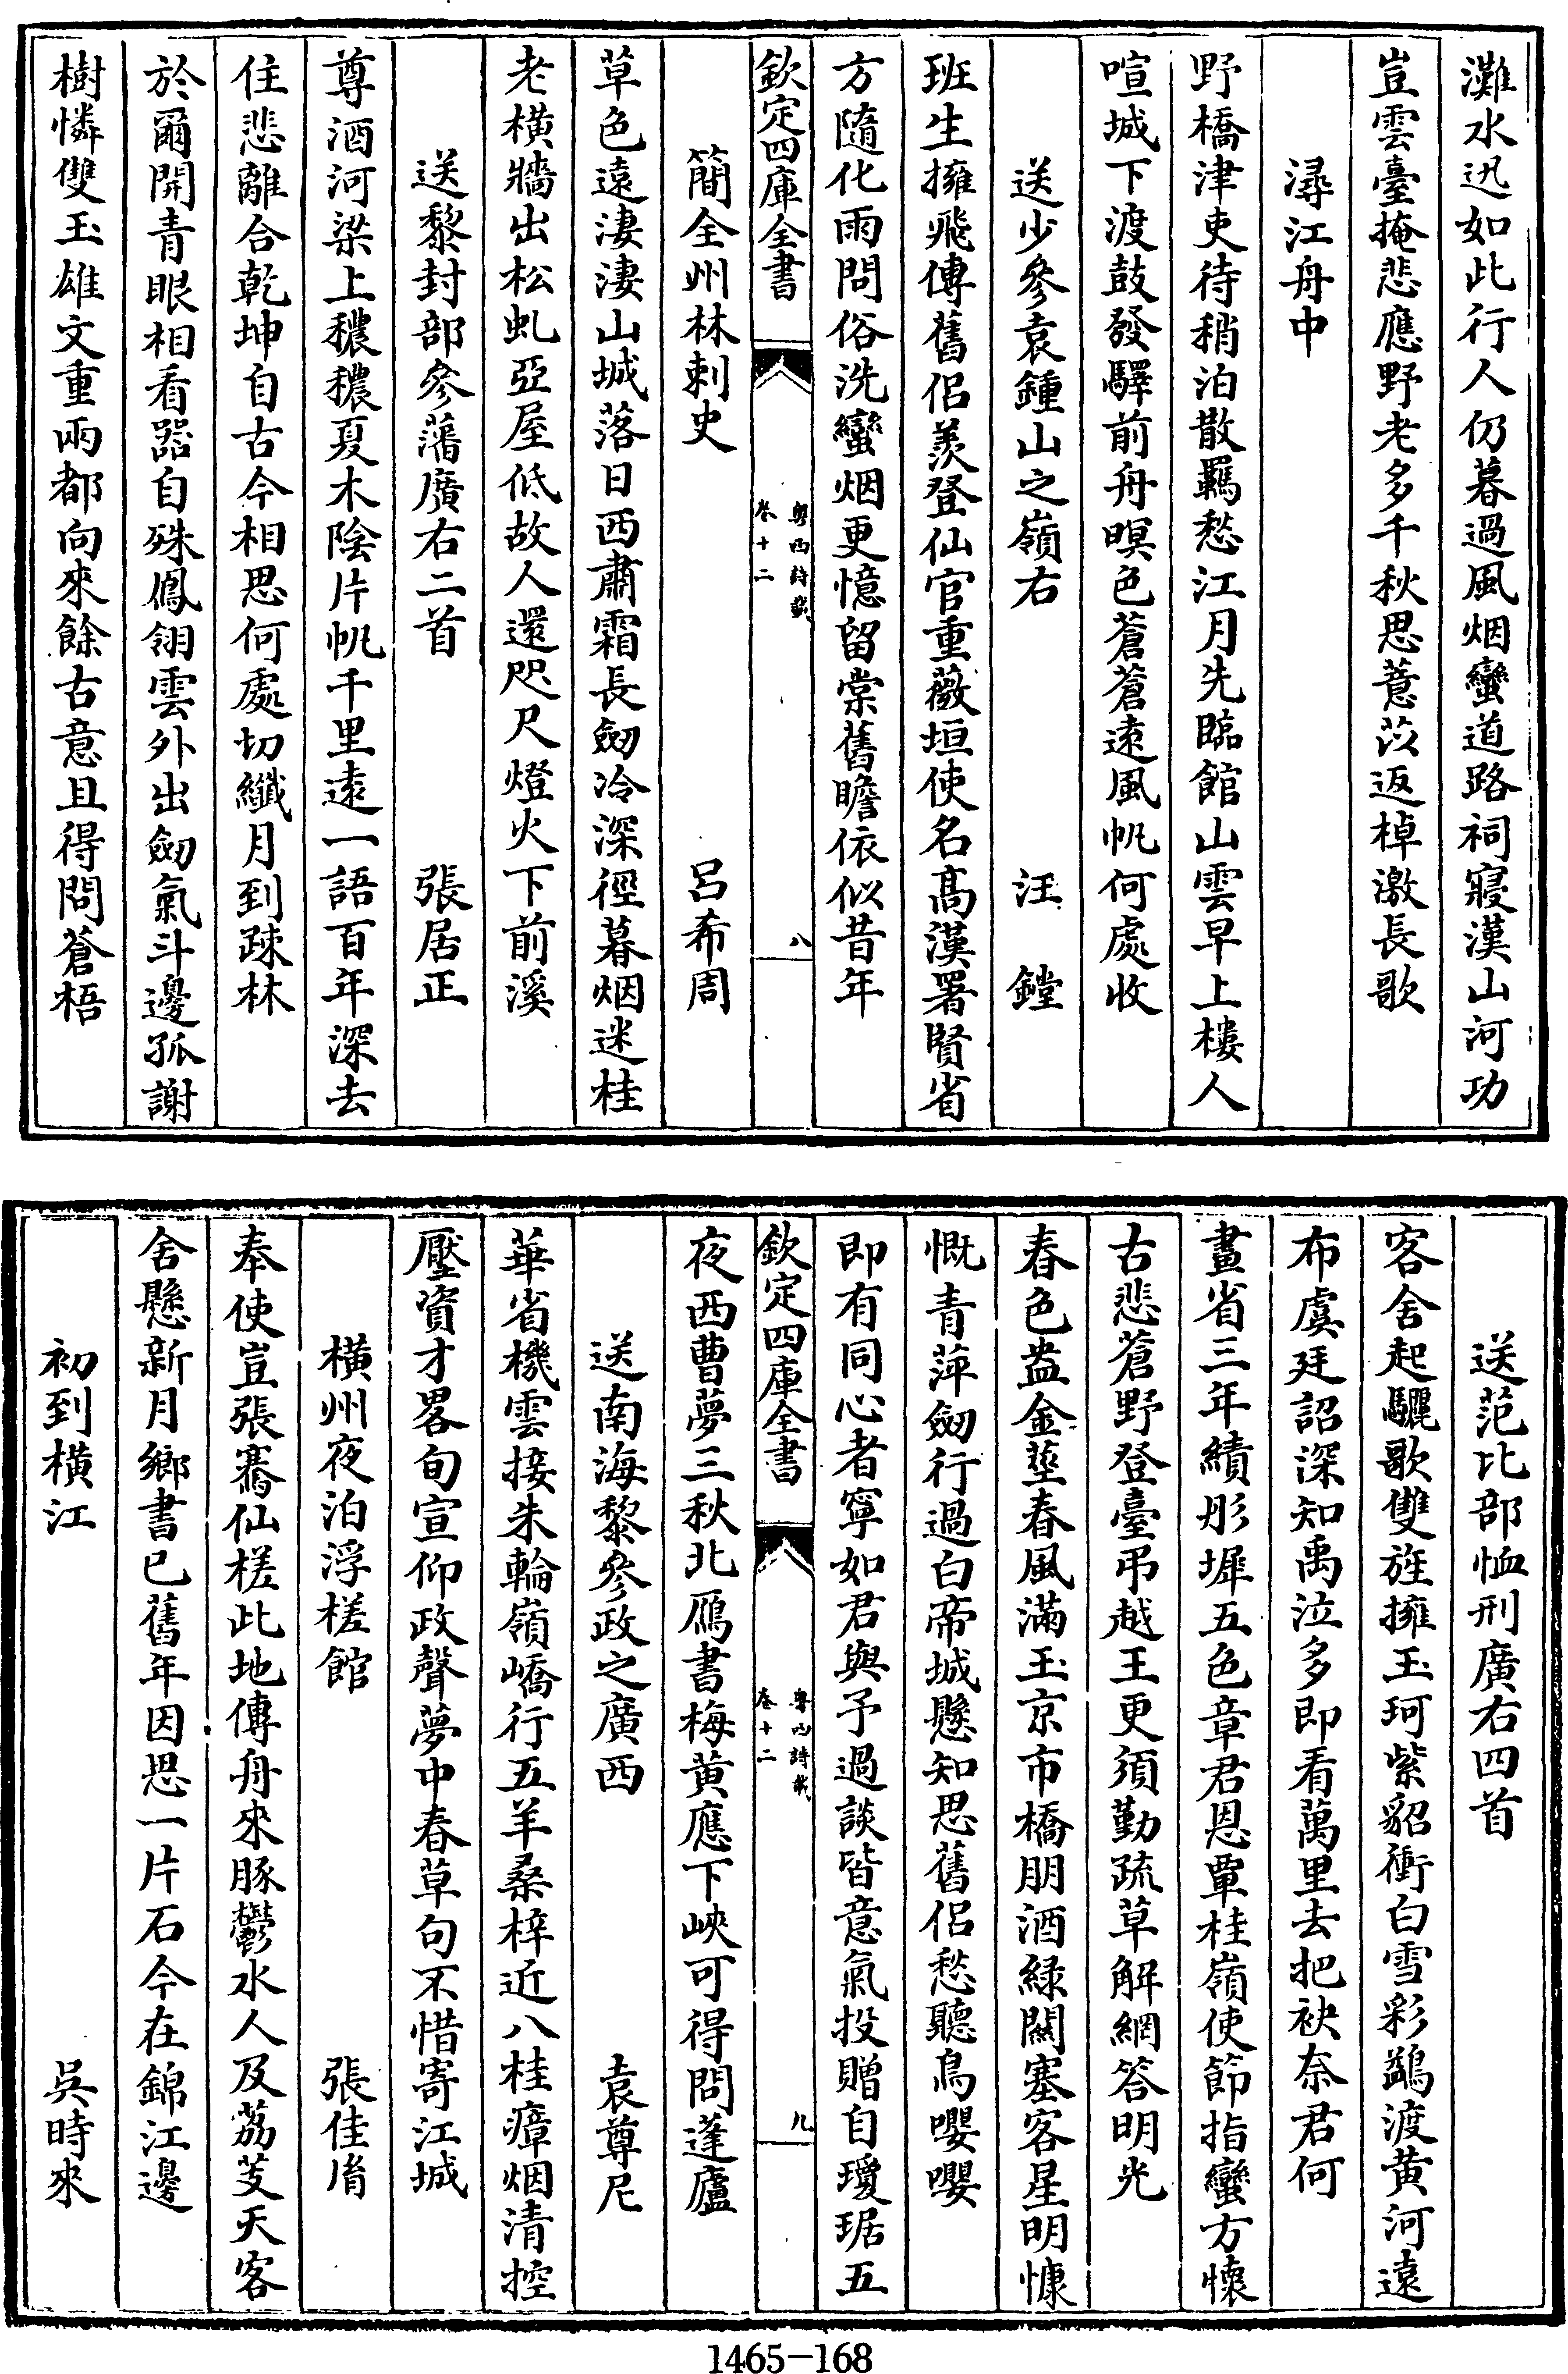 灘水迅如此行人仍暮過風烟蠻道路祠寢漢山河功
豈雲臺掩悲應野老多千秋思薏苡返棹激長歌
潯江舟中
野橋津吏待稍泊散羈愁江月先臨館山雲早上樓人
喧城下渡鼓發驛前舟暝色蒼蒼遠風帆何處收
送少參袁鍾山之嶺右 汪鏜
班生擁飛傳舊侶羨登仙官重薇垣使名高漢署賢省
方隨化雨問俗洗蠻烟更憶留棠舊瞻依似昔年
欽定四庫全書 粤西詩載 卷十二 八
簡全州林刺史 呂希周
草色遠淒淒山城落日西肅霜長劒冷深徑暮烟迷桂
老橫牆出松虬亞屋低故人還咫尺燈火下前溪
送黎封部參藩廣右二首 張居正
尊酒河梁上穠穠夏木陰片帆千里遠一語百年深去
住悲離合乾坤自古今相思何處切纖月到疎林
於爾開青眼相看器自殊鳳翎雲外出劒氣斗邊孤謝
樹憐雙玉雄文重兩都向來餘古意且得問蒼梧
送范比部恤刑廣右四首
客舍起驪歌雙旌擁玉珂紫貂衝白雪彩鷁渡黄河遠
布虞廷詔深知禹泣多即看萬里去把袂奈君何
畫省三年績彤墀五色章君恩覃桂嶺使節指蠻方懷
古悲蒼野登臺弔越王更須勤疏草解網答明光
春色盎金莖春風滿玉京市橋朋酒綠關塞客星明慷
慨青萍劒行過白帝城懸知思舊侶愁聽鳥嚶嚶
即有同心者寧如君與予過談皆意氣投贈自瓊琚五
欽定四庫全書 粤西詩載 卷十二 九
夜西曹夢三秋北鴈書梅黄應下峽可得問蓬廬
送南海黎參政之廣西 袁尊尼
華省機雲接朱輪嶺嶠行五羊桑梓近八桂瘴烟清控
壓資才畧旬宣仰政聲夢中春草句不惜寄江城
橫州夜泊浮槎館 張佳胤
奉使豈張騫仙槎此地傳舟來豚鬱水人及荔芰天客
舍懸新月鄉書已舊年因思一片石今在錦江邊
初到橫江 吳時來
1465-168